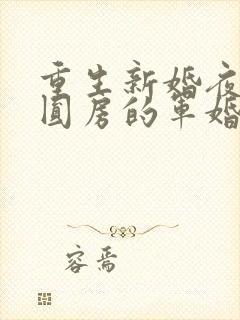 重生新婚夜
圆房的军婚
容焉